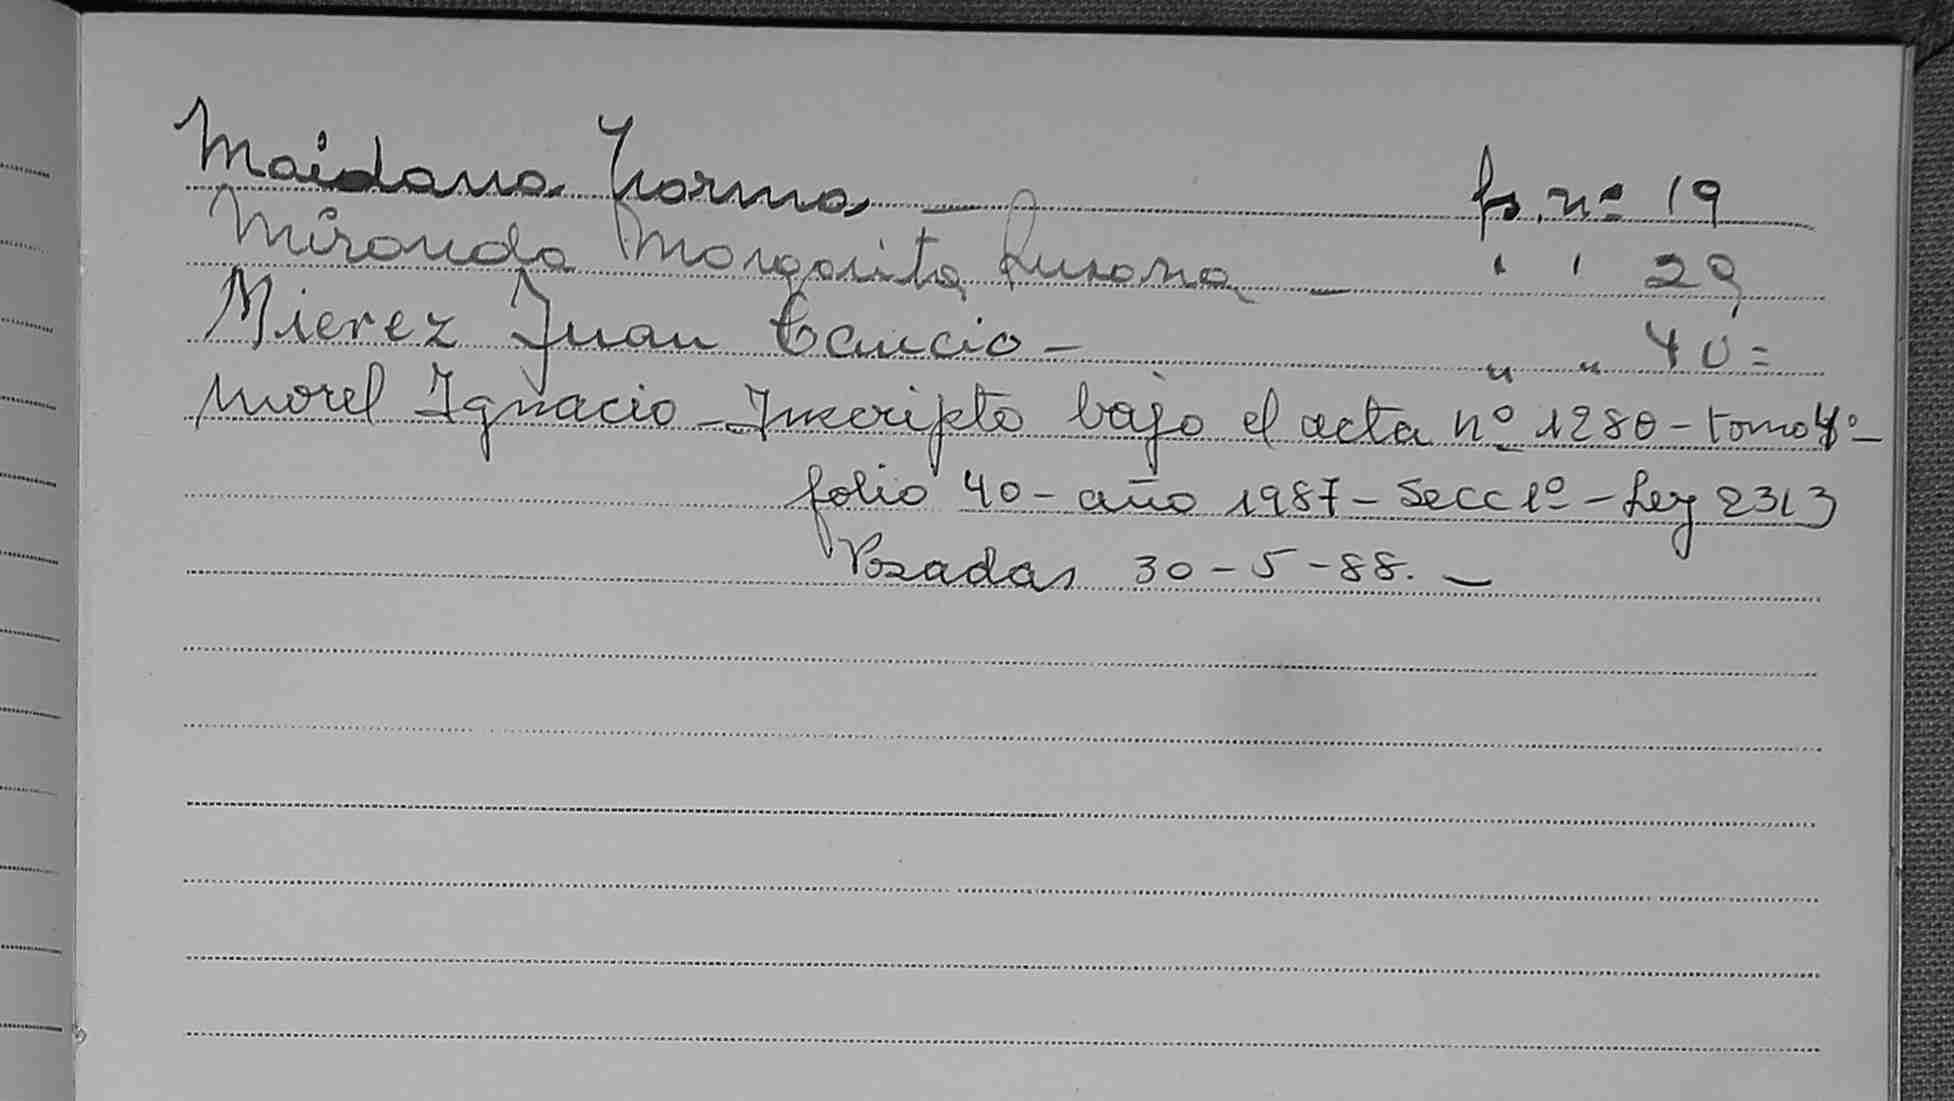 Maidana Norma — fs. nº 19
Miranda Margarita Susana — " " 29
Mierez Juan Cancio - " " 40=
Morel Ignacio - Inscripto bajo el acta nº 1280 - tomo 4º -
folio 40 - año 1987 - Secc 1º - Ley 2313
Posadas 30-5-88. —